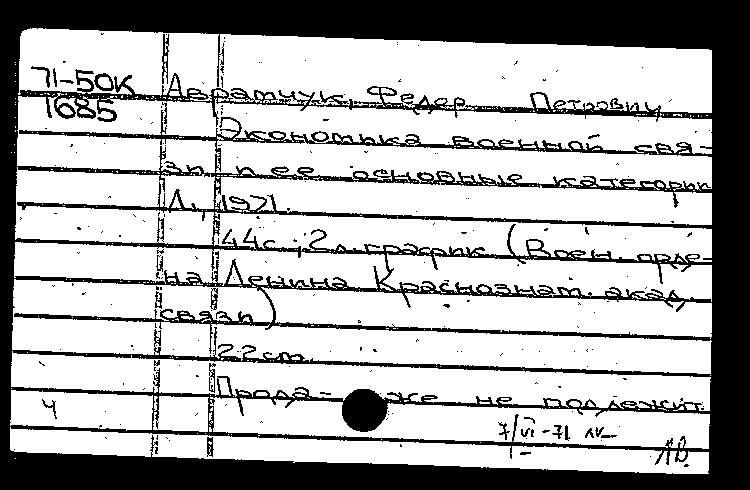 71-50К
1685
Аврамчук, Федер Петрович
Экономика военной свя-
зи и ее основные категории
Л., 1971.
44с., 2 л. график (Воен. орде-
на Ленина Краснознам. акад.
связи)
22см.
Прода- же не подлежит.
Ч
7/VI-71
ЛВ.